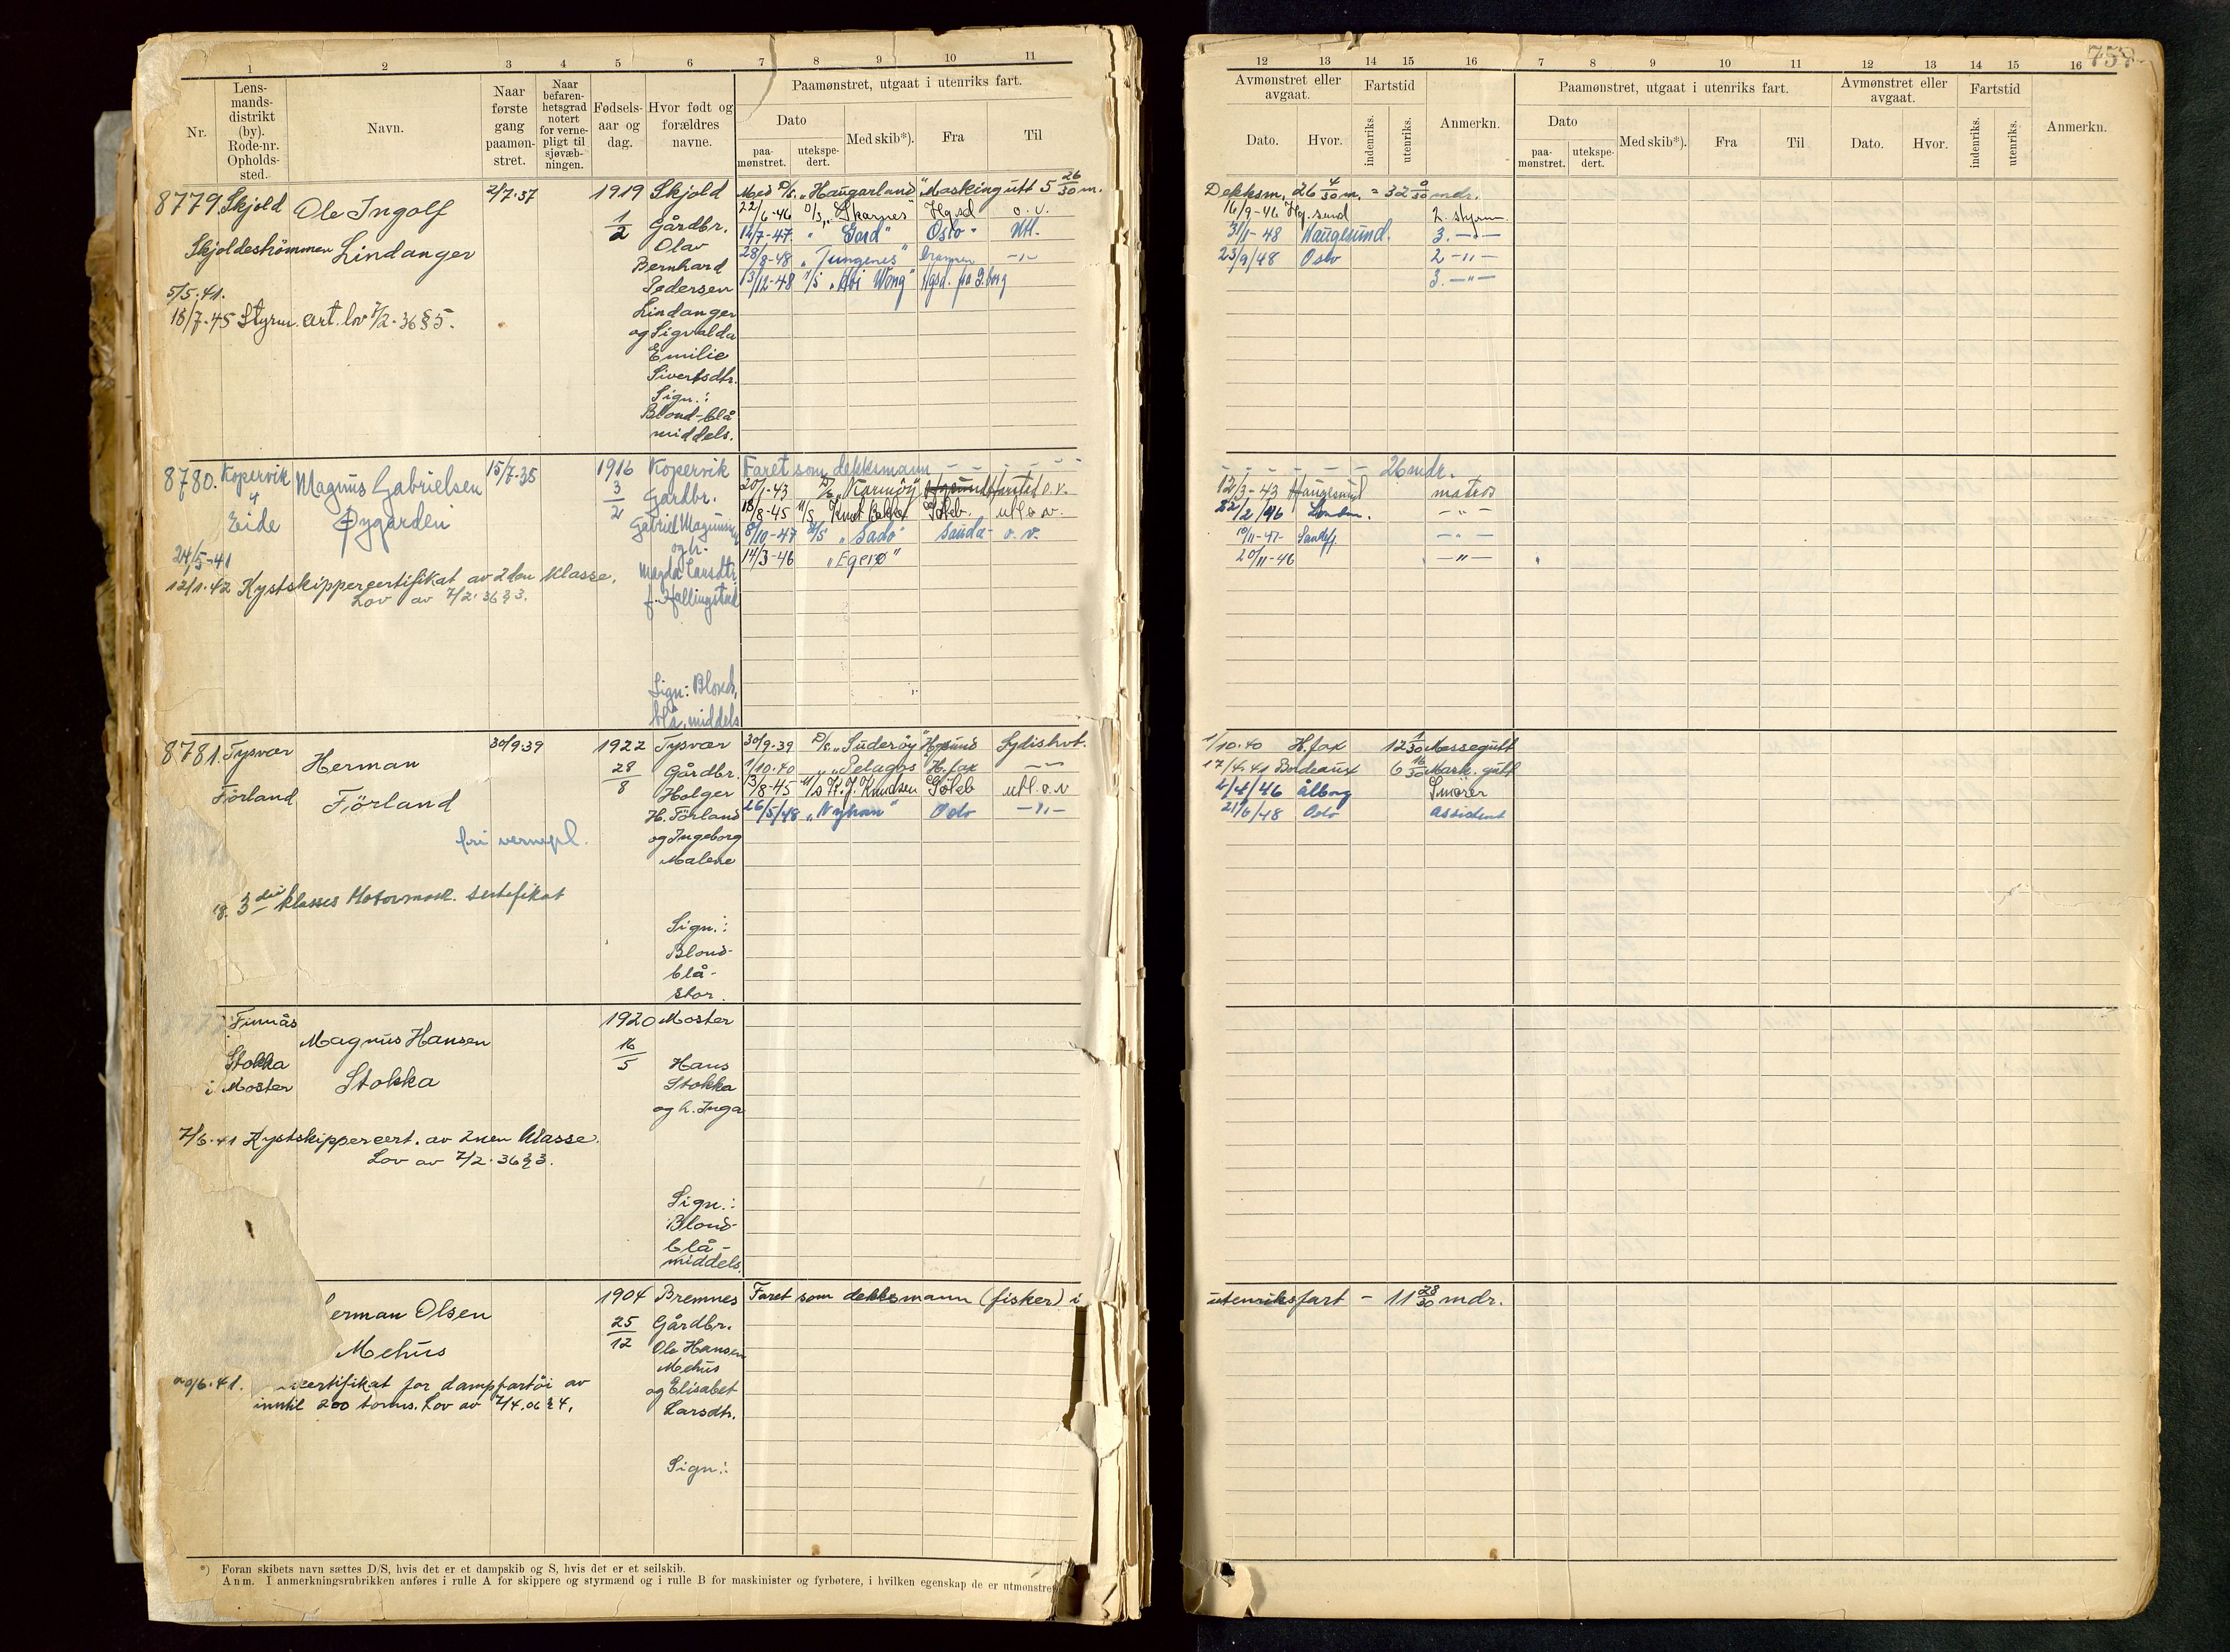 759
1 2 3 4 5 6 7 8 9 10 11
Nr.
Lens-
mands-
distrikt
(by).
Rode-nr.
Opholds-
sted.
Navn.
Naar
første
gang
paamøn-
stret.
Naar
befaren-
hetsgrad
notert
for verne-
pligt til
sjøvæb-
ningen.
Fødsels-
aar og
dag.
Hvor født og
forældres
navne.
Paamønstret, utgaat i utenriks fart.
Dato
paa-
mønstret.
utekspe-
dert.
Med skib*).
Fra
Til
12 13 14 15 16 7 8 9 10 11 12 13 14 15 16
Avmønstret eller
avgaat.
Dato.
Hvor.
Fartstid
indenriks.
utenriks.
Anmerkn.
Paamønstret, utgaat i utenriks fart.
Dato
paa-
mønstret.
utekspe-
dert.
Med skib*).
Fra
Til
Avmønstret eller
avgaat.
Dato.
Hvor.
Fartstid
indenriks.
utenriks.
Anmerkn.
8779. Skjold
Skjoldeströmmen
Ole Ingolf
Lindanger
2/7-37
1919
1/2
Skjold
Gårdbr.
Olav
Bernhard
Pedersen
Lindanger
og Sigvalda
Emilie
Sivertsdtr.
Sign.:
Blond-blå
middels.
5/5.41.
18/7-45 Styrm. cert. lov 7/2-36 § 5.
Med D/S. "Haugarland" Maskingutt 5 26/30 m. Dekksm. 26 4/30 m. = 32 0/30 mdr.
22/6-46 D/S "Skarnes" Hgsd o.v. 16/9-46 Hg.sund 2. styrm.
12/7-47 " "Gard" Oslo - Utl. 31/1-48 Haugesund. 3. -"-
28/8-48 "Tungenes" Drammen -"- 23/9/48 Oslo 2 -"-
13/12-48 M/S "Hoi Wong" Hgsd. fra G.borg 3. -"-
8780. Kopervik
Eide
Magnus Gabrielsen
Øygarden
15/7-35
1916
3/2
Kopervik
Gardbr.
Gabriel Magnus
og h.
Magda Larsdtr.
f. Hallingstad
Sign: Blond,
blå, middels
24/5-41
12/1.42 Kystskippercertifikat av 2den klasse.
Lov av 7/2.36 § 3.
Faret som dekksmann - - - - 26 mdr.
20/1-43 D/S "Karmöy" o.v. 12/3-43 Haugesund matros
18/8-45 M/S Knut Bakke Göteb. utl o.v. 22/2/46 London. -"-
8/10-47 "Sado" Sauda - o.v. 10/11-47- Sandefj. -"-
14/3-46 "Egerø" 20/11-46 -"-
8781. Tysvær
Förland
Herman
Förland
30/9.39
1922
28/8
Tysvær
Gårdbr.
Holger
H. Förland
og Ingeborg
Malene
Sign.:
Blond-
blå-
stor.
fri vernepl.
3die klasses Motormask. sertifikat
30/9-39 D/S. "Suderöy" Hgsund Sydishvt. 1/10.40 H.fax 12 1/30 Messegutt
1/10.40 " "Pelagos H.fax -"- 17/4.41 Bordeaux 6 16/30 Mask. gutt
3/8-45 M/S K. J. Knudsen Göteb utl. o.v 4/4/46 Ålborg Smører
26/5/48 "Nyhorn" Oslo -"- 21/6/48 Oslo Assistent
Finnås
Stokka
i Moster
Magnus Hansen
Stokka
1920
16/5
Moster
Hans
Stokka
og h. Inga
Sign.:
Blond-
blå-
middels.
7/6.41 Kystskippercert. av 2nen klasse.
Lov av 7/2.36 § 3.
erman Olsen
Mehus
1904
25/12
Bremnes
Gårdbr.
Ole Hansen
Mehus
og Elisabet
Larsdtr.
Sign.:
Faret som dekksmann (fisker) i utenriksfart - 11 28/30 mdr.
/6.41. certifikat for dampfartöi av
inntil 200 tonns. Lov av 7/4.06 § 4.
*) Foran skibets navn sættes D/S, hvis det er et dampskib og S, hvis det er et seilskib.
Anm. I anmerkningsrubrikken anføres i rulle A for skippere og styrmænd og i rulle B for maskinister og fyrbøtere, i hvilken egenskap de er utmønstret